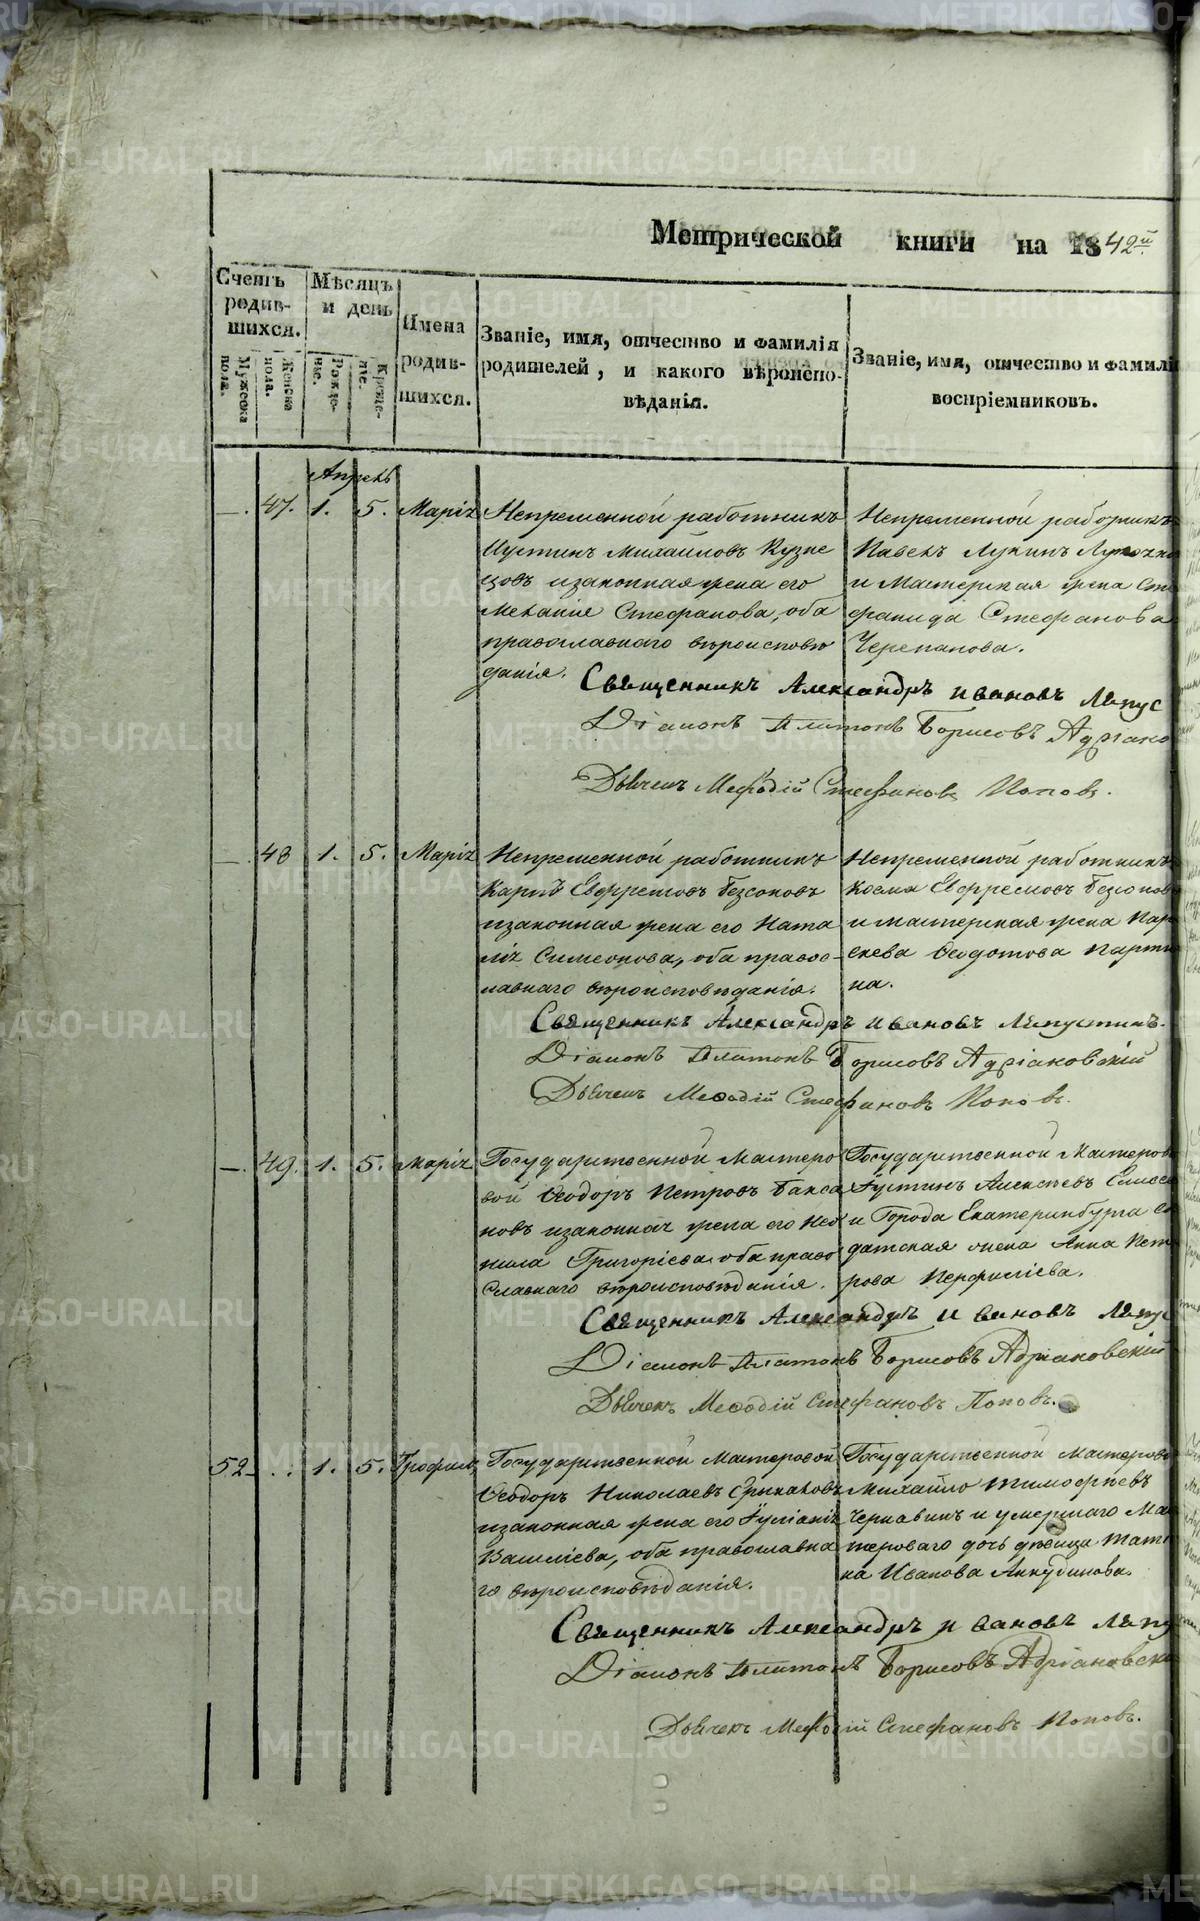 Метрической книги на 1842й
Счетъ родив-шихся.
Мужеска пола.
Женска пола.
Мѣсяцъ и день
Рожде-нiе.
Креще-нiе.
Имена родив-шихся.
Званіе, имя, отчество и фамилія
родителей, и какого вѣроиспо-
вѣданія.
Званіе, имя, отчество и фамилі
воспріемниковъ.
Апрель
—. 47. 1. 5. Марія
Непременной работникъ
Иустинъ Михаиловъ Кузне
цовъ изаконная жена его
Меланіе Стефанова, оба
православнаго вѣроисповѣ
данія.
Непременной работникъ
Павелъ Лукинъ
и Мастерская жена Сте
фанида Стефанова
Черепанова.
Священникъ Александръ Ивановъ Ляпус
Діаконъ Платонъ Борисовъ Адріано
Дьячекъ Мефодій Стефановъ Поповъ.
—. 48 1. 5. Марія
Непременной работникъ
Карпъ Евфремовъ Безсоновъ
изаконная жена его Ната
лія Симеонова, оба правос-
лавнаго вѣроисповѣданія.
Непременной работникъ
Косма Евфремовъ Безсонов
и мастерская жена Пар
скева Ѳеодотова Парши
на.
Священникъ Александръ Ивановъ Ляпустинъ.
Діаконъ Платонъ Борисовъ Адріановскій
Дьячекъ Меѳодій Стефановъ Поповъ.
—. 49. 1. 5. Марія
Государственной Мастеро
вой Ѳеодоръ Петровъ Бакса
новъ изаконная жена его Нео
нила Григоріева оба право
славнаго вѣроисповѣданія.
Государственной Мастеров
Іустинъ Алексѣевъ Елисе
и Города Екатеринбурга Сол
датская жена Анна Пет
рова Перфиліева.
Священникъ Александръ Ивановъ Ляпус
Діаконъ Платонъ Борисовъ Адріановскій
Дьячекъ Меѳодій Стефановъ Поповъ.
52 — . . 1. 5. Трофимъ
Государственной Мастеровой
Ѳеодоръ Николаевъ
изаконная жена его Іуліанія
Василіева, оба православна
го вѣроисповѣданія.
Государственной мастерово
Михайло Тимофѣевъ
Чернавинъ и умершаго Мас
тероваго дочь девица Татія
на Иванова Анкудинова.
Священникъ Александръ Ивановъ Ляпу
Діаконъ Платонъ Борисовъ Адріановски
Дьячекъ Мефодій Стефановъ Поповъ.
METRIKI.GASO-URAL.RU